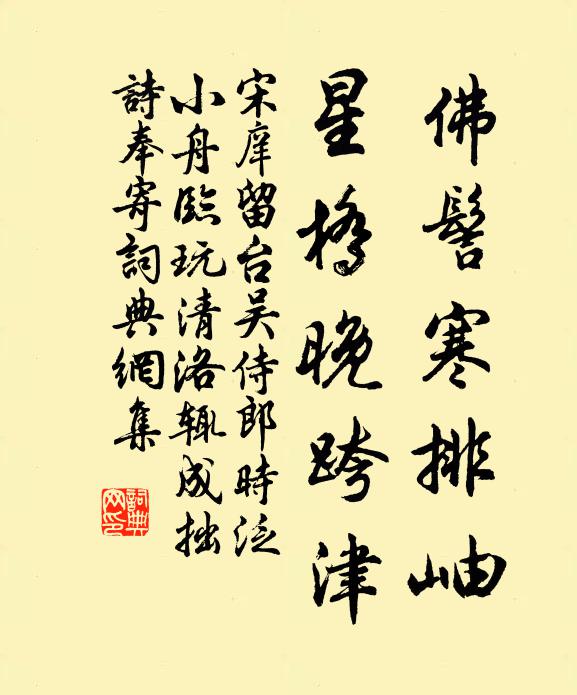 佛髻寒排岫
星橋晚跨津
宋庠留台吴侍郎時泛
小舟臨玩清洛辄成拙
詩奉寄詞典網集
詞典
网印